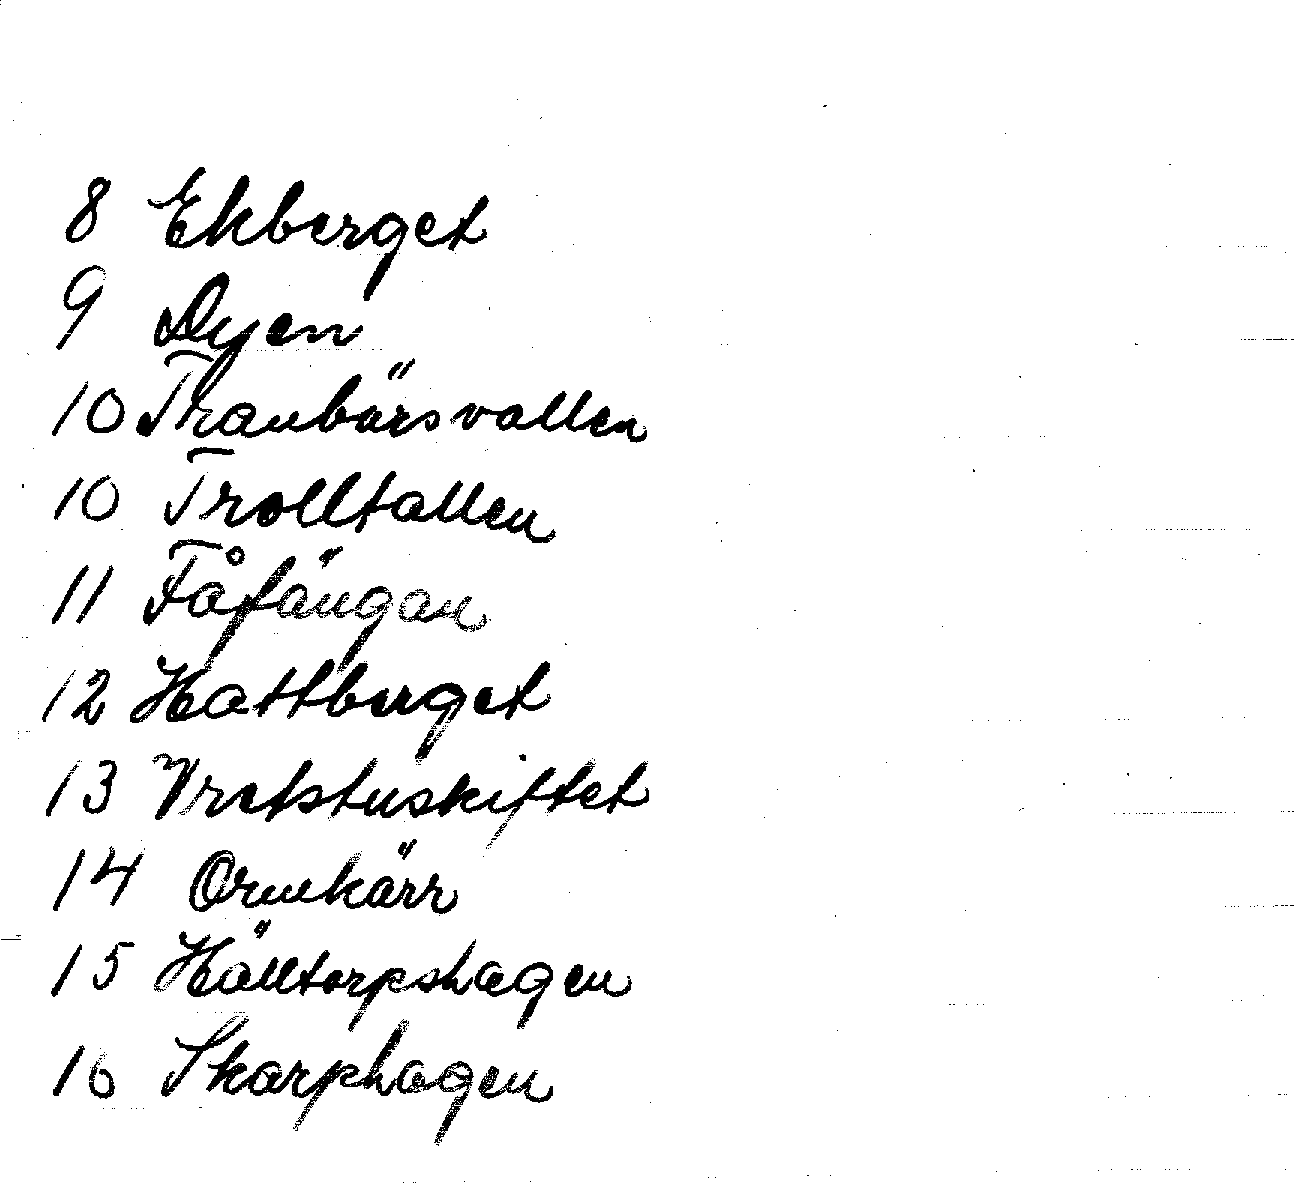 8 Ekberget
9 Dyen
10 Tranbärsvallen
10 Trolltallen
11 Fåfängan
12 Hattberget
13 Vretstuskiftet
14 Ormkärr
15 Hälltorpshagen
16 Skarphagen